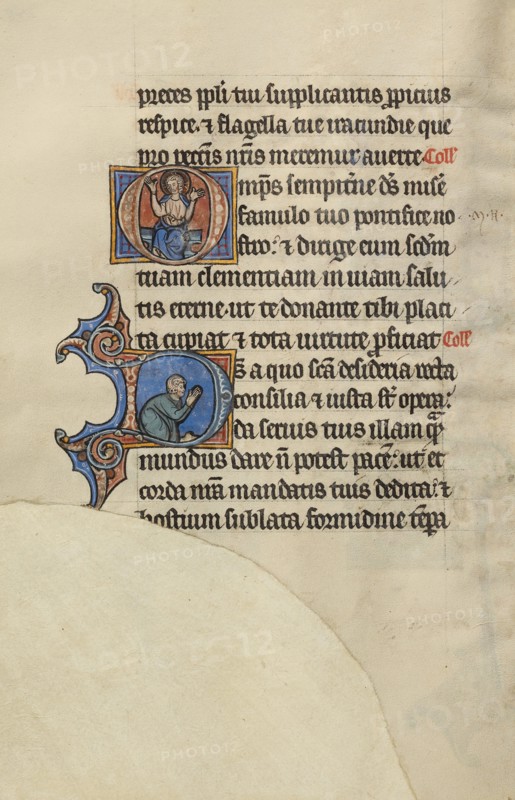 preces ppli tui supplicantis ppicius
respice. ⁊ flagella tue iracundie que
pro peccis nris meremur auerte. Coll
Omps sempitne ds mise
famulo tuo pontifice no
stro. ⁊ dirige eum scdm
tuam clementiam in uiam salu
tis eterne. ut te donante tibi placi
ta cupiat ⁊ tota uirtute pficiat Coll
Ds a quo sca desideria recta
consilia ⁊ iusta st opera.
da seruis tuis illam qm
mundus dare n potest pace. ut et
corda nra mandatis tuis dedita. ⁊
hostium sublata formidine tepa
PHOTO12